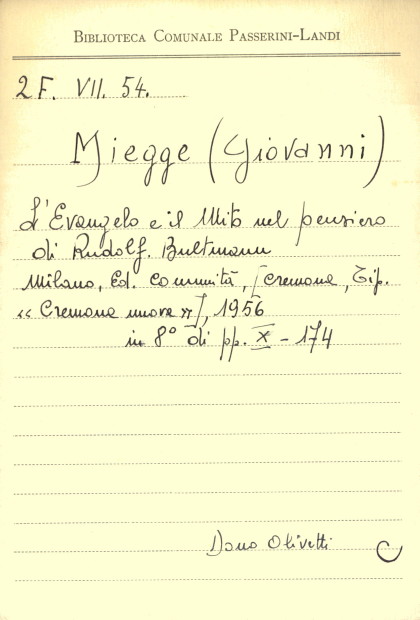 BIBLIOTECA COMUNALE PASSERINI-LANDI
2F. VII. 54.
Miegge (Giovanni)
L'Evangelo e il Mito nel pensiero
di Rudolf. Bultmann
Milano, Ed. Comunità, [Cremona, Tip.
"Cremona nuova"], 1956
in 8° di pp. X - 174
Dono Olivetti
C